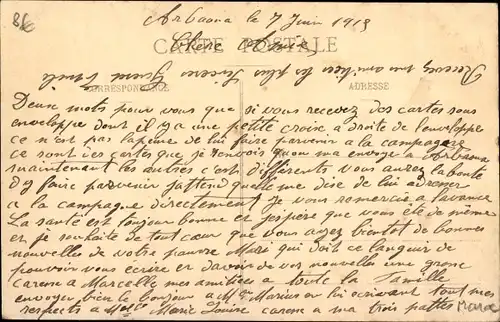 8€
Arbaoua le 7 Juin 1913
CARTE POSTALE
Chère Amie
Recevez mon amitiées les plus sincère
CORRESPONDANCE
ADRESSE
Deux mots pour vous que si vous recevez dos cartes sous
enveloppe dont il y a une petite croix a droite de l'enveloppe
ce n'est pas la peine de lui faire parvenir a la campagne
ce sont des cartes que je renvois qu'on ma envoyé a Arbaoua
maintenant les autres c'est différents vous aurez la bonté
d'y faire parvenir j'attend qu'elle me dise de lui adresser
a la campagne directement Je vous remercie a l'avance
La santé est toujour bonne et j'espère que vous êle de même
et je souhaite de tout cœur que vous ayez bientot de bonnes
nouvelles de votre pauvre Mari qui doit ce languir de
pouvoir vous ecrire et d'avoir de vos nouvelles une grosse
caresse a Marcelle mes amitiées a toute la famille
envoyer bien le bonjour a Mr Marius en lui ecrivant tout mes
respects a Melle Marie Louise caresse a ma trois pattes
Maroc